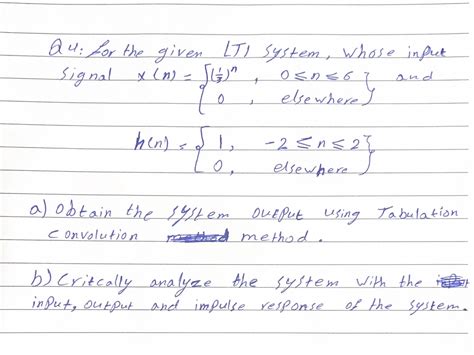 Q4: for the given LTI system, whose input
signal x(n) = { (1/3)^n , 0 ≤ n ≤ 6 } and
{ 0 , elsewhere }
h(n) = { 1, -2 ≤ n ≤ 2 }
{ 0, elsewhere }
a) Obtain the system output using Tabulation
Convolution method.
b) Critcally analyze the system with the
input, output and impulse response of the system.